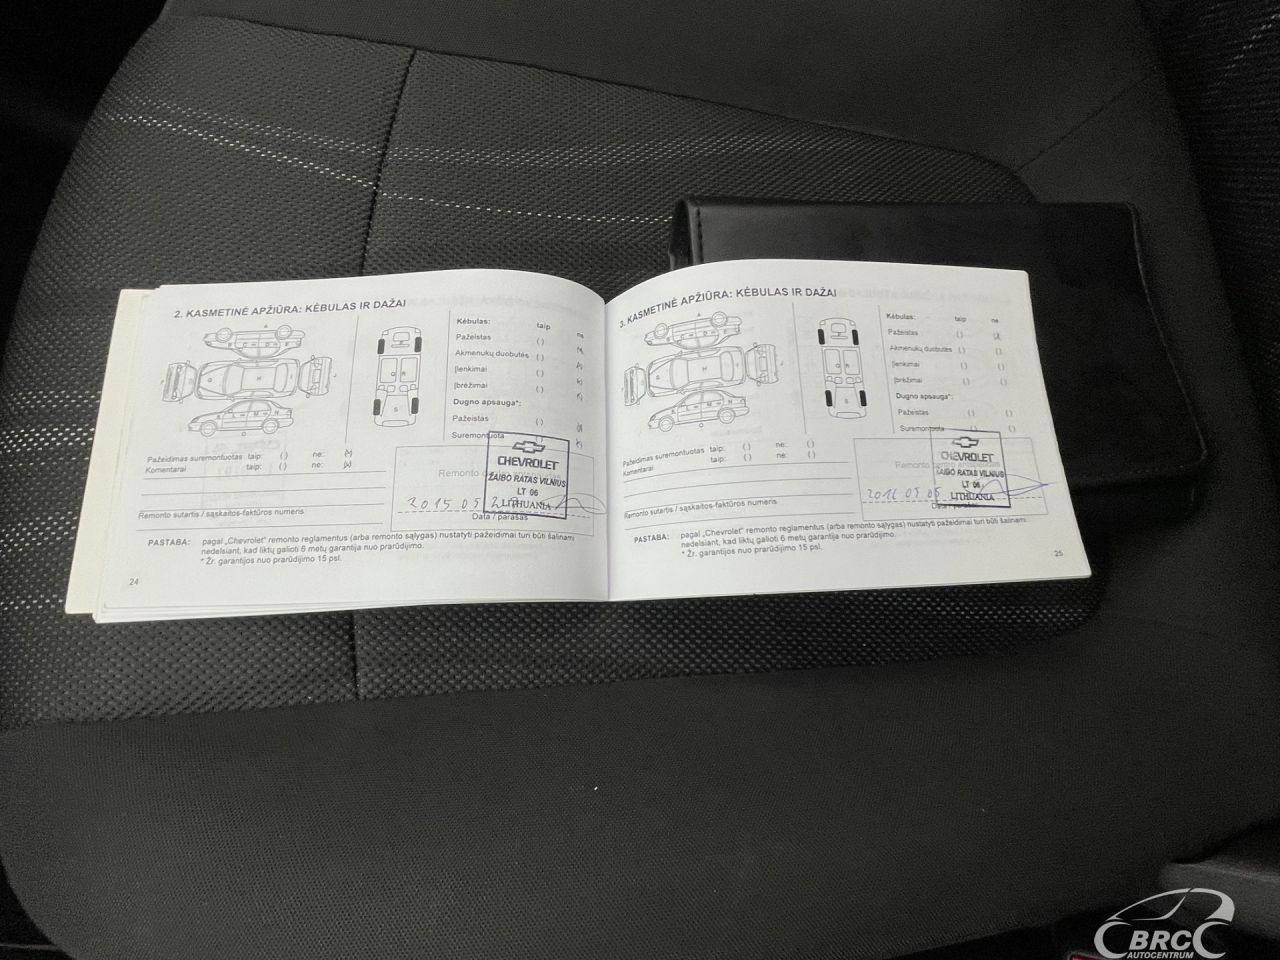 2. KASMETINĖ APŽIŪRA: KĖBULAS IR DAŽAI
Kėbulas: taip ne
Pažeistas ( )
Akmenukų duobutės ( )
Įlenkimai ( )
Įbrėžimai ( )
Dugno apsauga*:
Pažeistas ( )
Suremontuota ( )
Pažeidimas suremontuotas taip: ( ) ne:
Komentarai taip: ( ) ne:
Remonto
CHEVROLET
ŽAIBO RATAS VILNIUS
LT 06
LITHUANIA
2015 05
Data / parašas
Remonto sutartis / sąskaitos-faktūros numeris
PASTABA: pagal „Chevrolet" remonto reglamentus (arba remonto sąlygas) nustatyti pažeidimai turi būti šalinami
nedelsiant, kad liktų galioti 6 metų garantija nuo prarūdijimo.
* Žr. garantijos nuo prarūdijimo 15 psl.
24
3. KASMETINĖ APŽIŪRA: KĖBULAS IR DAŽAI
Kėbulas: taip ne
Pažeistas ( )
Akmenukų duobutės ( ) ( )
Įlenkimai ( ) ( )
Įbrėžimai ( ) ( )
Dugno apsauga*:
Pažeistas ( ) ( )
Suremontuota ( ) ( )
Pažeidimas suremontuotas taip: ( ) ne: ( )
Komentarai taip: ( ) ne: ( )
Remonto
CHEVROLET
ŽAIBO RATAS VILNIUS
LT 06
LITHUANIA
2016 05 05
Data / parašas
Remonto sutartis / sąskaitos-faktūros numeris
PASTABA: pagal „Chevrolet" remonto reglamentus (arba remonto sąlygas) nustatyti pažeidimai turi būti šalinami
nedelsiant, kad liktų galioti 6 metų garantija nuo prarūdijimo.
* Žr. garantijos nuo prarūdijimo 15 psl.
25
BRC
AUTOCENTRUM